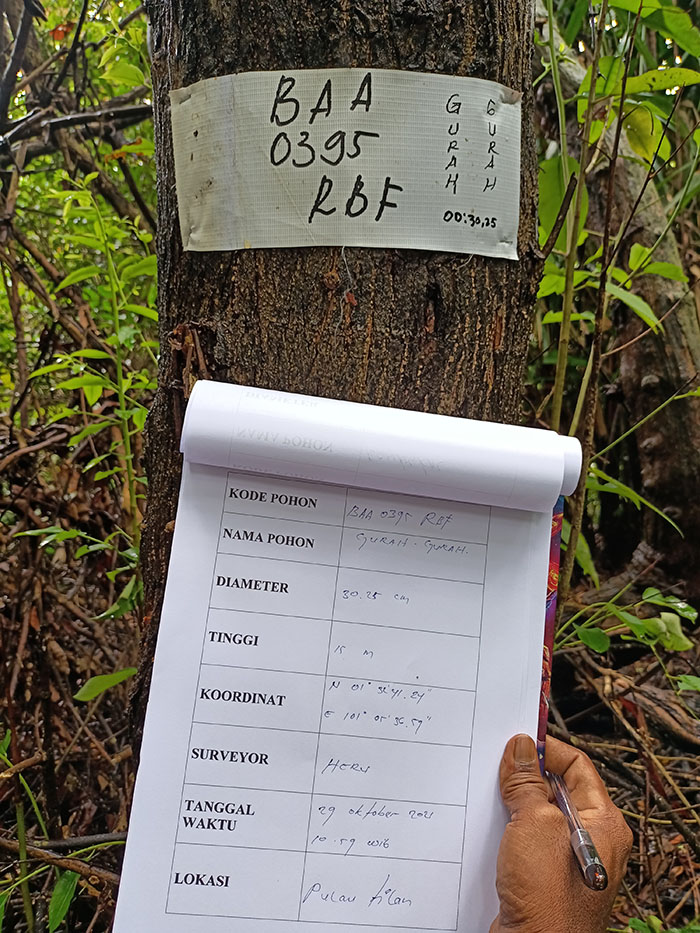 BAA
0395
RBF
GURAH
GURAH
OD:30,25
KODE POHON BAA 0395 RBF
NAMA POHON GURAH - GURAH.
DIAMETER 30.25 cm
TINGGI 15 m
KOORDINAT N 01° 32' 41.24"
E 101° 05' 36.57"
SURVEYOR HERU
TANGGAL 29 oktober 2021
WAKTU 10.59 wib
LOKASI Pulau